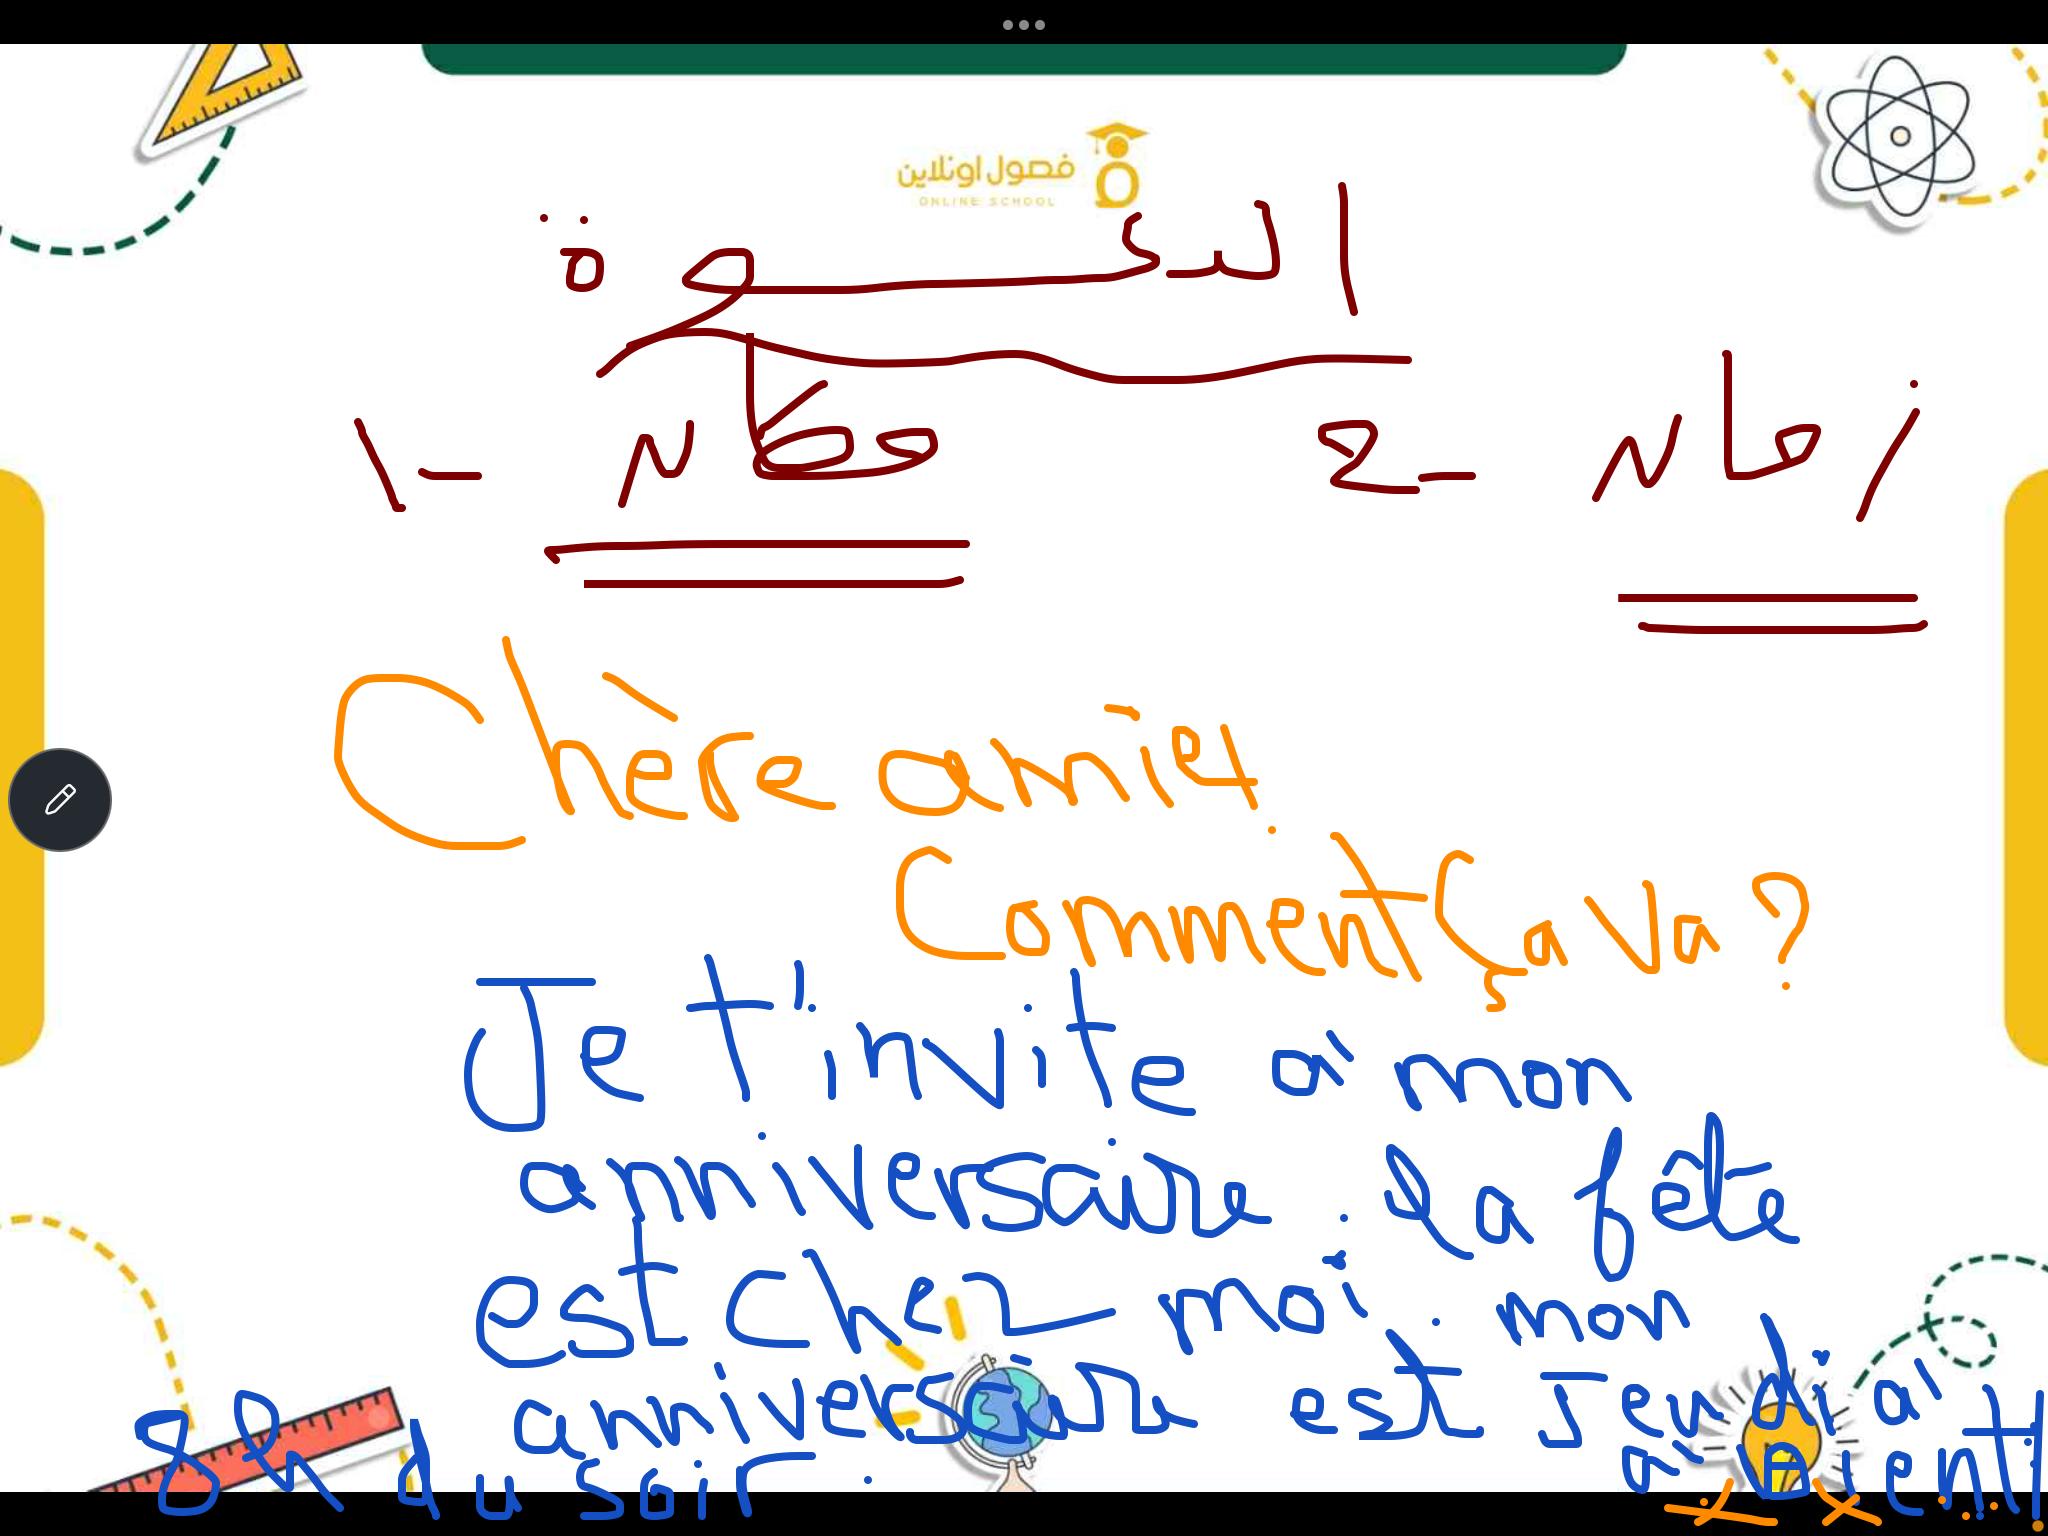 فصول اونلاين
ONLINE SCHOOL
الدعوة
1- مكان 2- زمان
Chère amie,
Comment ça va ?
Je t'invite à mon
anniversaire. la fête
est chez moi. mon
anniversaire est Jeudi à
8h du soir. à Bient